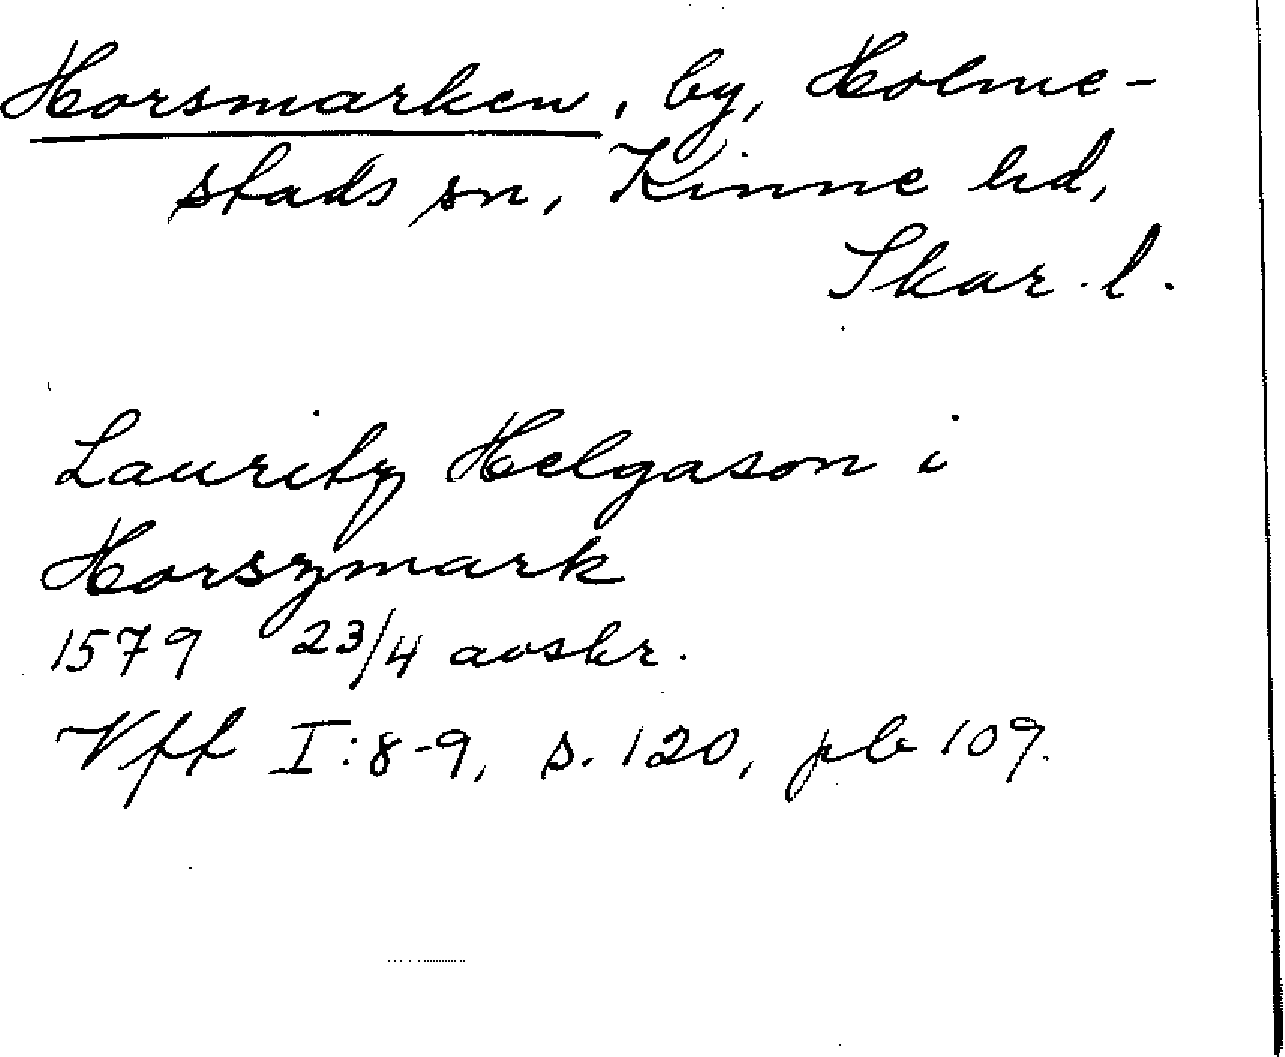 Horsmarken, by, Holme-
stads sn, Kinne hd,
Skar. l.
Lauritz Helgason i
Horszmark
1579 23/4 avskr.
Vff I:8-9, s. 120, pb 109.